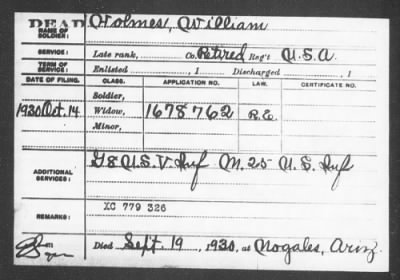 DEAD
NAME OF SOLDIER: Holmes, William
SERVICE: Late rank, Co. Retired Reg't U.S.A.
TERM OF SERVICE: Enlisted , 1 Discharged , 1
DATE OF FILING. CLASS. APPLICATION NO. LAW. CERTIFICATE NO.
Soldier,
1930 Oct. 14 Widow, 1678762 R.E.
Minor,
ADDITIONAL SERVICES: G 8 U.S.V. Inf M. 25 U.S. Inf
REMARKS: XC 779 326
Died Sept. 19, 1930, at Nogales, Ariz.